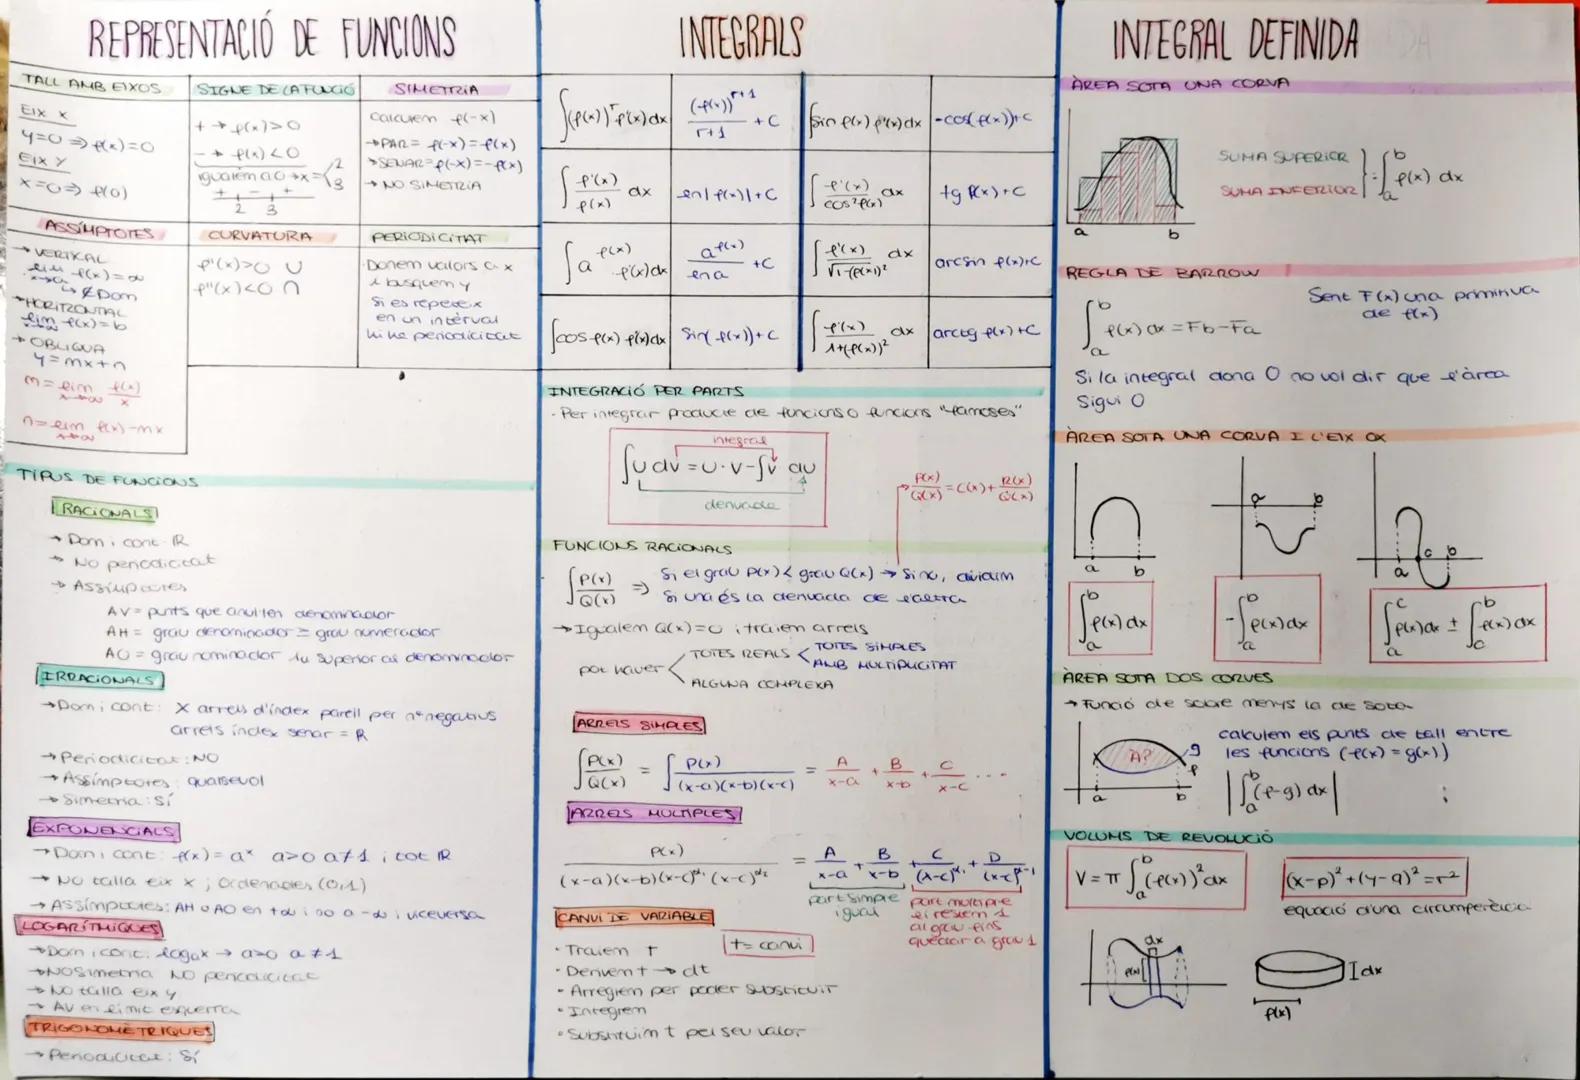 REPRESENTACIÓ DE FUNCIONS
TALL AMB EIXOS
EIX X
y=0 ⇒ f(x)=0
EIX Y
x=0 ⇒ f(0)
SIGNE DE LA FUNCIÓ
+ → f(x)>0
- → f(x)<0
igualem a 0 → x= 2
3
+ - +
2 3
SIMETRIA
Calculem f(-x)
→ PAR= f(-x)=f(x)
→ SENAR= f(-x)=-f(x)
→ NO SIMETRIA
ASSÍMPTOTES
→ VERTICAL
lim f(x)=∞
x→a
↳ ∉ Dom
→ HORITZONTAL
lim f(x)=b
x→∞
→ OBLIQUA
y=mx+n
m= lim f(x)/x
x→∞
n= lim f(x)-mx
x→∞
CURVATURA
f''(x)>0 ∪
f''(x)<0 ∩
PERIODICITAT
Donem valors a x
i busquem y
Si es repeteix
en un intèrval
hi ha periodicitat
TIPUS DE FUNCIONS
RACIONALS
→ Dom i cont. ℝ
→ No periodicitat
→ Assímptotes
AV= punts que anul·len denominador
AH= grau denominador ≥ grau numerador
AO= grau nominador 1u superior al denominador
IRRACIONALS
→ Dom i cont: X arrels d'índex parell per nº negatius
arrels índex senar = ℝ
→ Periodicitat: NO
→ Assímptotes: qualsevol
→ Simetria: Sí
EXPONENCIALS
→ Dom i cont: f(x)=aˣ a>0 a≠1 i tot ℝ
→ No talla eix x; Ordenades (0,1)
→ Assímptotes: AH o AO en +∞ i no a -∞ i viceversa
LOGARÍTMIQUES
→ Dom i cont: logₐx → a>0 a≠1
→ No simetria No periodicitat
→ No talla eix y
→ AV en límit esquerra
TRIGONOMÈTRIQUES
→ Periodicitat: Sí
INTEGRALS
∫(f(x))ʳ f'(x)dx
(f(x))ʳ⁺¹/r+1 +C
∫sin f(x) f'(x)dx
-cos(f(x))+C
∫ f'(x)/f(x) dx
ln|f(x)|+C
∫ f'(x)/cos²f(x) dx
tg f(x)+C
∫a^f(x) · f'(x)dx
a^f(x)/ln a +C
∫ f'(x)/√1-(f(x))² dx
arcsin f(x)+C
∫cos f(x) f'(x)dx
sin(f(x))+C
∫ f'(x)/1+(f(x))² dx
arctg f(x)+C
INTEGRACIÓ PER PARTS
· Per integrar producte de funcions o funcions "famoses"
integral
∫u dv = u·v-∫v du
derivada
P(x)/Q(x) = C(x)+ R(x)/Q(x)
FUNCIONS RACIONALS
∫ P(x)/Q(x) ⇒ Si el grau P(x)< grau Q(x) → Si no, dividim
Si una és la derivada de l'altra
→ Igualem Q(x)=0 i traiem arrels
pot haver
TOTES REALS
TOTES SIMPLES
AMB MULTIPLICITAT
ALGUNA COMPLEXA
ARRELS SIMPLES
∫ P(x)/Q(x) = ∫ P(x)/(x-a)(x-b)(x-c) = A/x-a + B/x-b + C/x-c ...
ARRELS MULTIPLES
P(x)/(x-a)(x-b)(x-c)^α₁(x-c)^α₂ = A/x-a + B/x-b + C/(x-c)^α₁ + D/(x-c)^α-1
part simple
igual
part multiple
li restem 1
al grau fins
quedar a grau 1
CANVI DE VARIABLE
t= canvi
· Traiem t
· Derivem t → dt
· Arreglem per poder substituir
· Integrem
· Substituïm t pel seu valor
INTEGRAL DEFINIDA
ÀREA SOTA UNA CORVA
SUMA SUPERIOR
SUMA INFERIOR
= ∫ₐᵇ f(x) dx
a b
REGLA DE BARROW
∫ₐᵇ f(x) dx = Fb-Fa
Sent F(x) una primitiva
de f(x)
Si la integral dona 0 no vol dir que l'àrea
Sigui 0
ÀREA SOTA UNA CORVA I L'EIX OX
a b
a b
a c b
∫ₐᵇ f(x) dx
-∫ₐᵇ f(x) dx
∫ₐᶜ f(x) dx ± ∫꜀ᵇ f(x) dx
ÀREA SOTA DOS CORVES
→ Funció de sobre menys la de sota
A?
g
f
a b
calculem els punts de tall entre
les funcions (f(x)=g(x))
|∫ₐᵇ (f-g) dx|
VOLUMS DE REVOLUCIÓ
V=π ∫ₐᵇ (f(x))² dx
(x-p)²+(y-q)²=r²
equació d'una circumperència
dx
f(x)
dx
f(x)